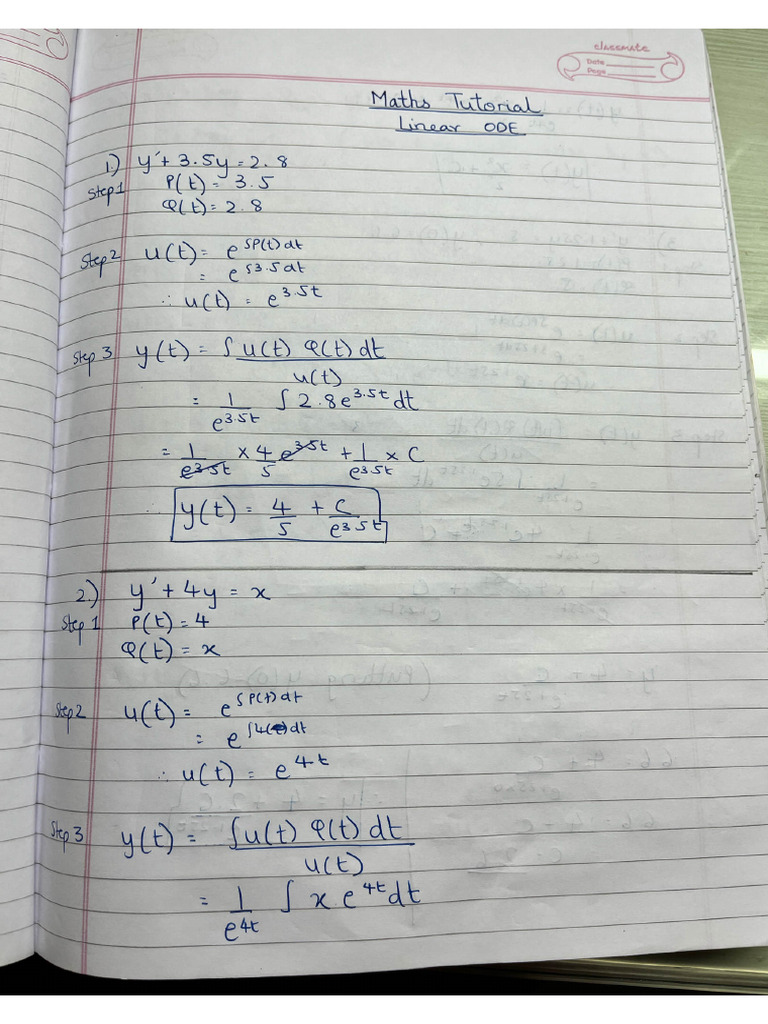 classmate
Date
Page
Maths Tutorial
Linear ODE
1) y' + 3.5y = 2.8
Step 1 P(t) = 3.5
Q(t) = 2.8
Step 2 u(t) = e^∫P(t)dt
= e^∫3.5dt
∴ u(t) = e^3.5t
Step 3 y(t) = ∫u(t) Q(t) dt / u(t)
= 1/e^3.5t ∫ 2.8e^3.5t dt
= 1/e^3.5t × 4/5 e^3.5t + 1/e^3.5t × C
y(t) = 4/5 + C/e^3.5t
2.) y' + 4y = x
Step 1 P(t) = 4
Q(t) = x
Step 2 u(t) = e^∫P(t)dt
= e^∫4(t)dt
∴ u(t) = e^4t
Step 3 y(t) = ∫u(t) Q(t) dt / u(t)
= 1/e^4t ∫ x e^4t dt